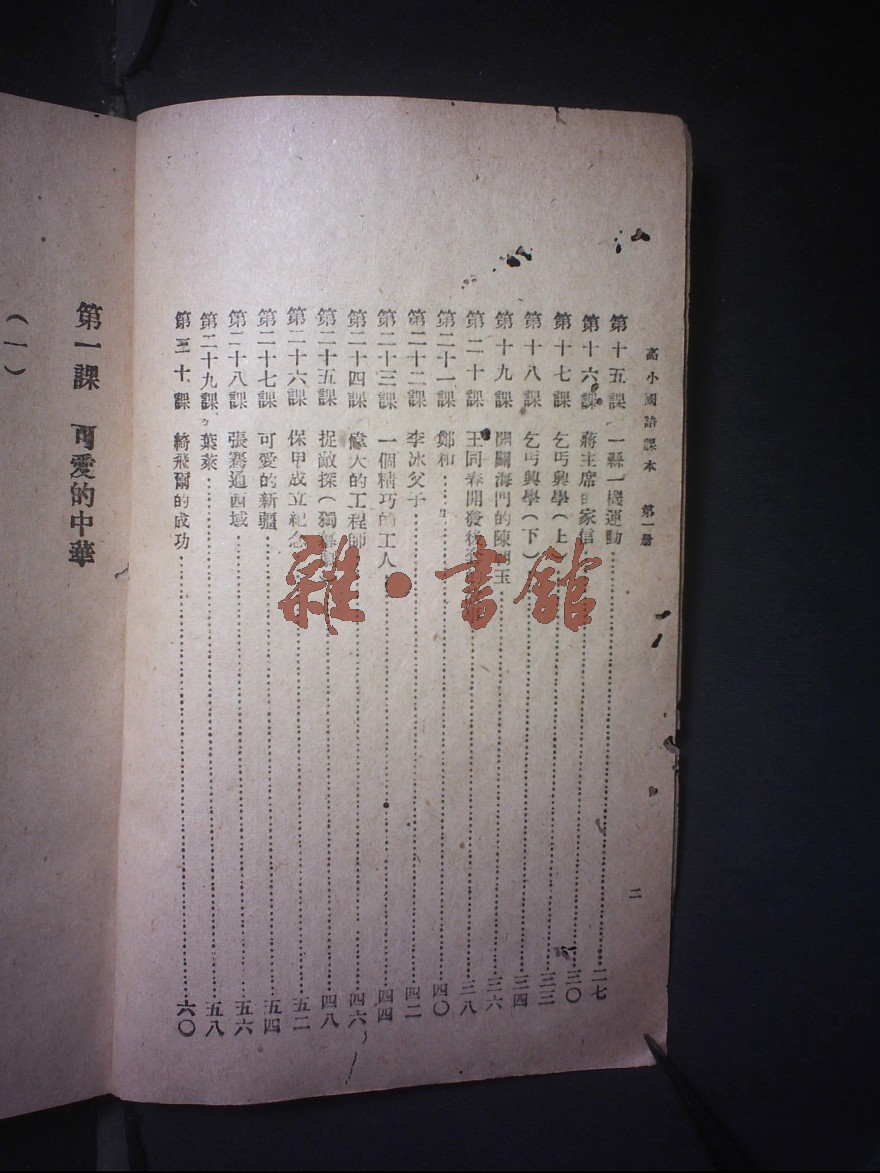 高小國語課本 第一册
二
第十五課 一縣一機運動 二七
第十六課 蔣主席的家信 三〇
第十七課 乞丐興學(上) 三三
第十八課 乞丐興學(下) 三四
第十九課 開闢海門的陳 玉 三六
第二十課 王同春開發後套 三八
第二十一課 鄭和 四〇
第二十二課 李冰父子 四二
第二十三課 一個精巧的工人 四四
第二十四課 偉大的工程師 四六
第二十五課 捉敵探(獨幕劇) 四八
第二十六課 保甲成立紀念 五二
第二十七課 可愛的新疆 五四
第二十八課 張騫通西域 五六
第二十九課 葉萊 五八
第三十課 綺飛爾的成功 六〇
第一課 可愛的中華
(一)
雜·書館